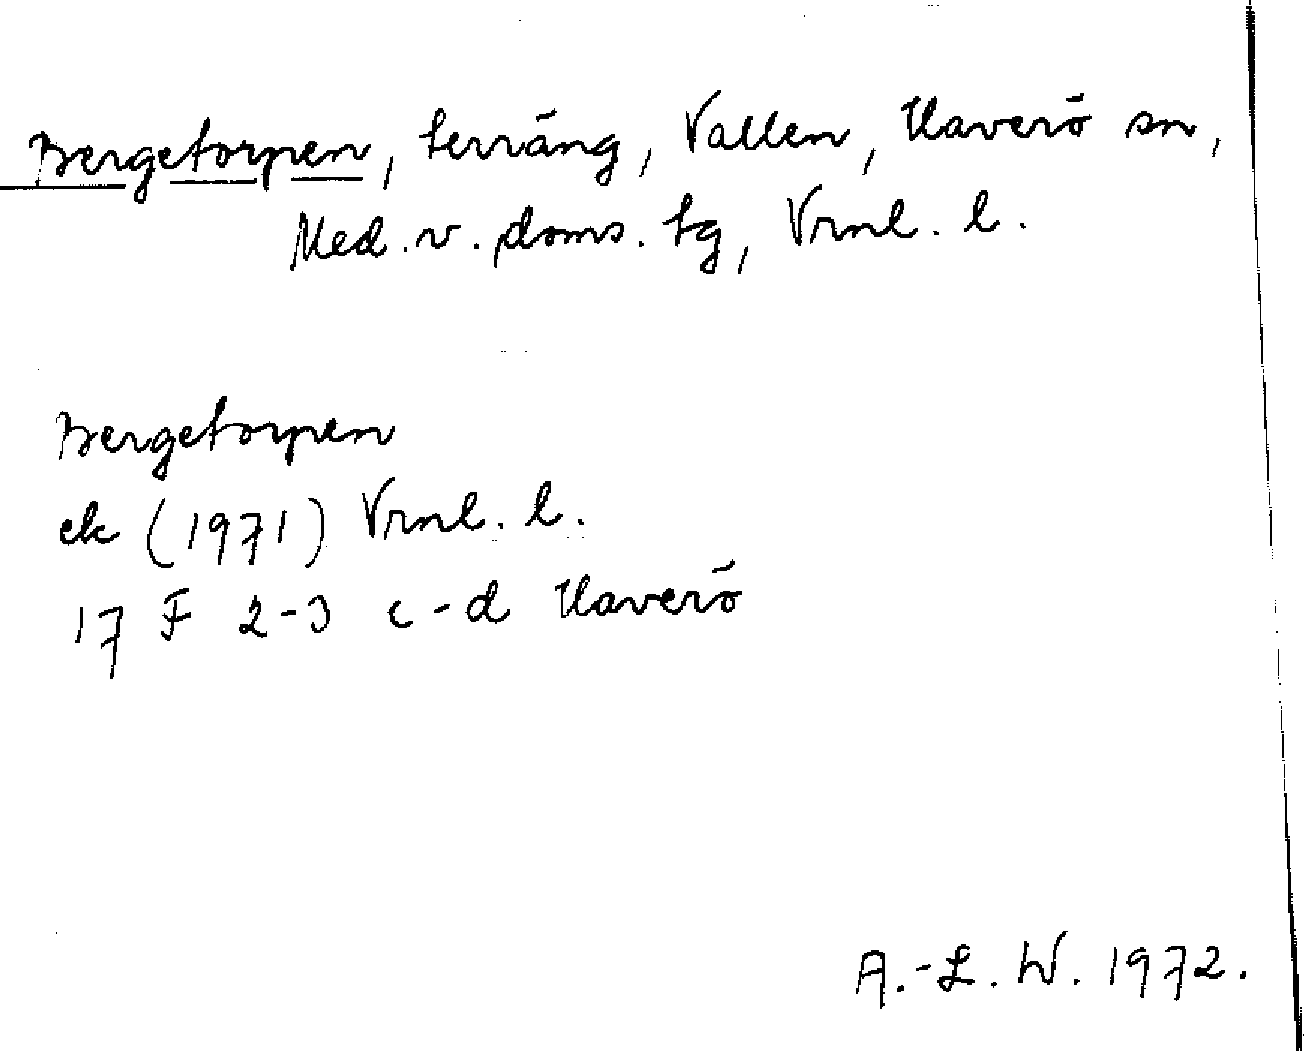 Bergetorpen, terräng, Vallen, Haverö sn,
Med. v. doms. tg, Vrnl. l.
Bergetorpen
ek (1971) Vrnl. l.
17 F 2-3 c-d Haverö
A.-L. W. 1972.